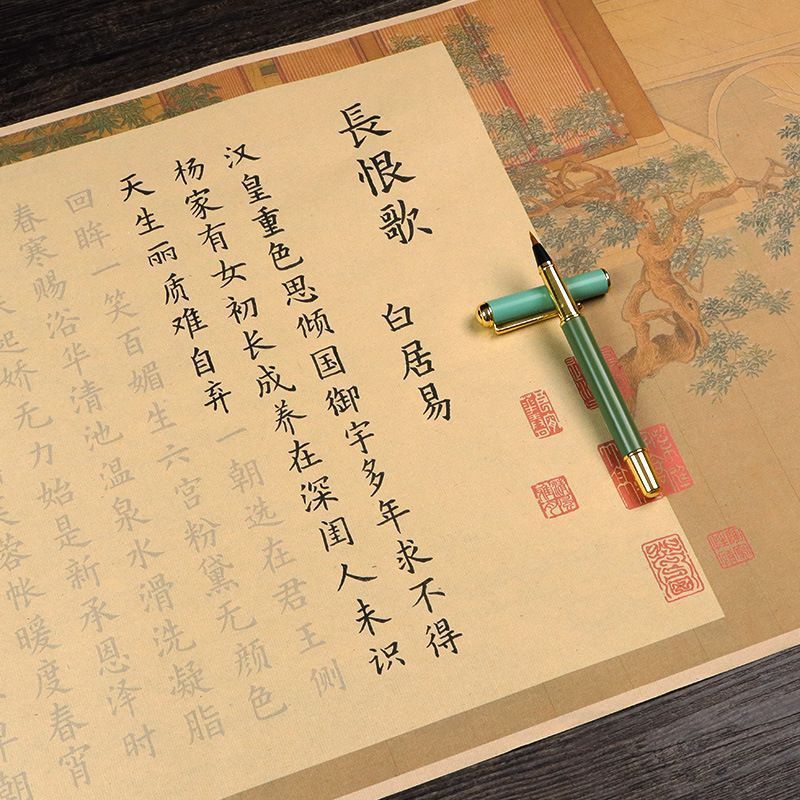 長恨歌 白居易
汉皇重色思倾国御宇多年求不得
杨家有女初长成养在深闺人未识
天生丽质难自弃一朝选在君王侧
回眸一笑百媚生六宫粉黛无颜色
春寒赐浴华清池温泉水滑洗凝脂
起娇无力始是新承恩泽时
蓉帐暖度春宵
早朝